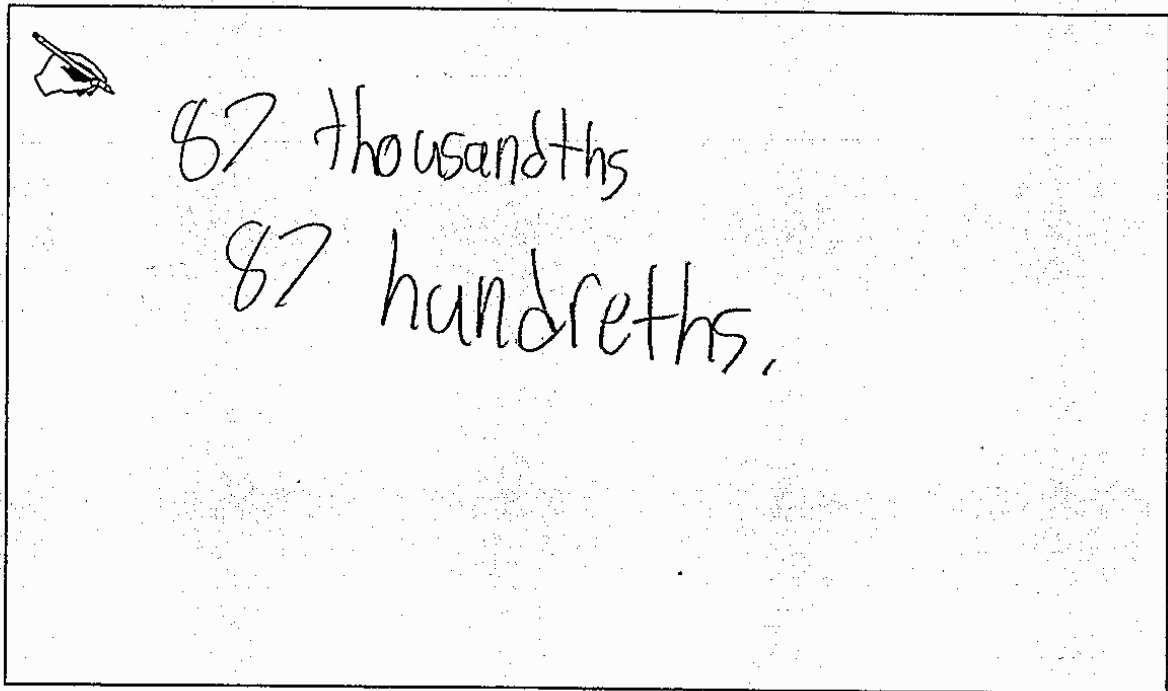 87 thousandths
87 hundreths.